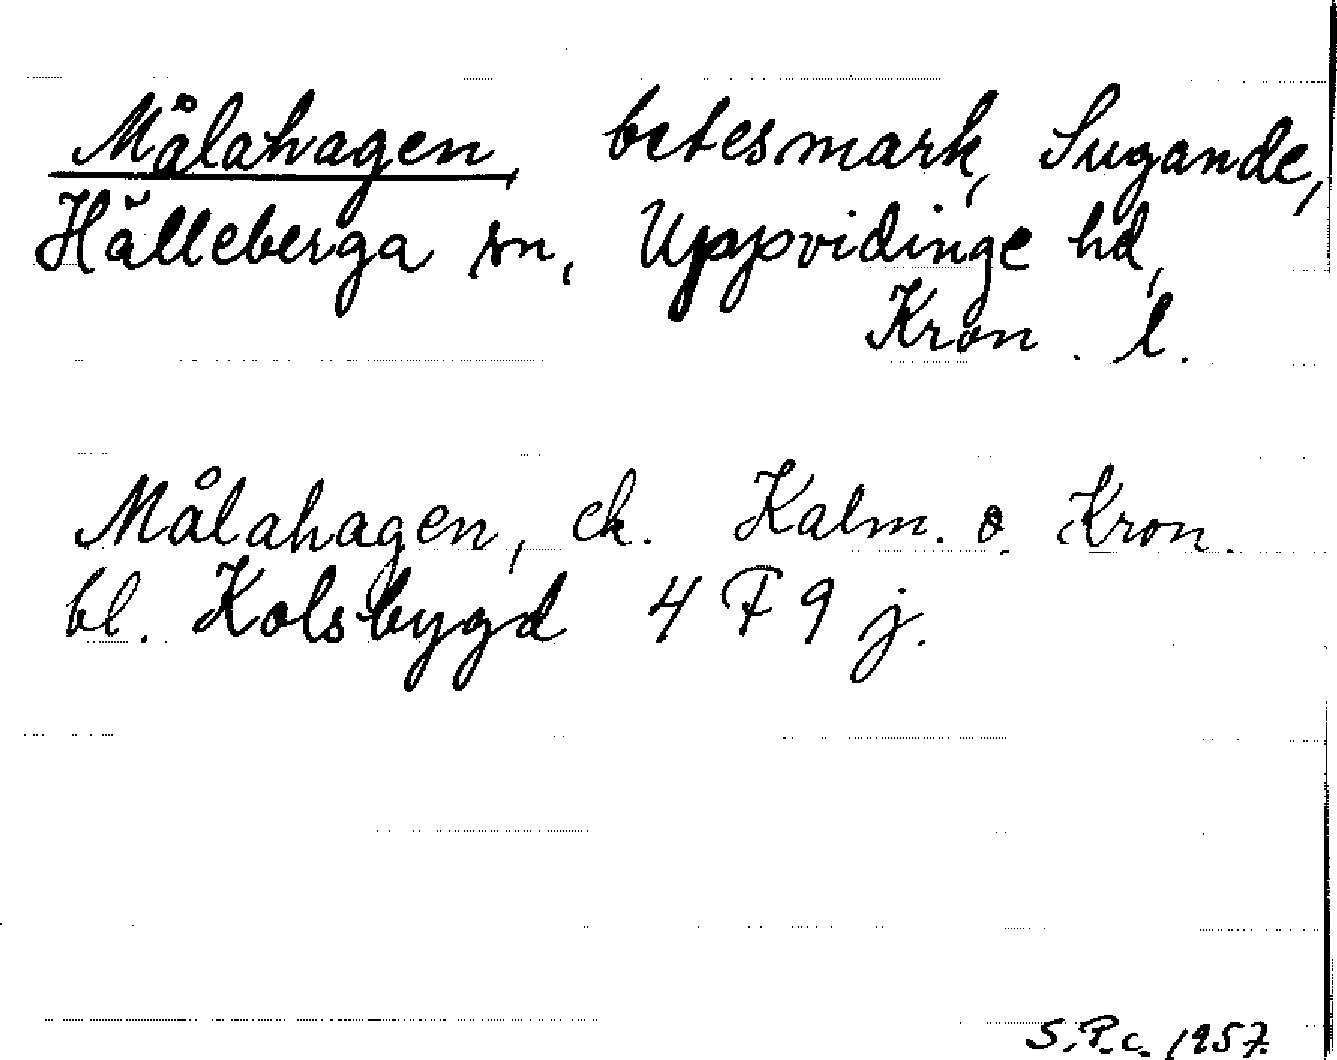 Målahagen, betesmark, Sugande,
Hälleberga sn, Uppvidinge hd,
Kron. l.
Målahagen, ek. Kalm. o. Kron.
bl. Kolsbygd 4 F 9 j.
S.P.c. 1957.